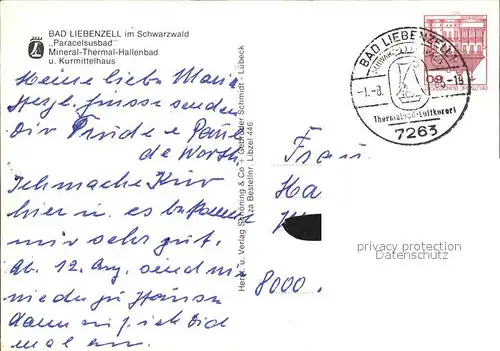 BAD LIEBENZELL im Schwarzwald
„Paracelsusbad"
Mineral-Thermal-Hallenbad
u. Kurmittelhaus
Meine liebe Maria
Herzl. Grüsse senden
Dir Trude u.
de Worth
Ich mache Kur
hier u. es bekommt
mir sehr gut.
Ab 12. Aug. sind wir
wieder zu Hause
dann ruf ich Dich
mal an.
Herst. u. Verlag Schöning & Co + Gebrüder Schmidt - Lübeck
Bestellnr. Libzel 446
BAD LIEBENZELL
-1.-8.
-18
Thermalbad-Luftkurort
7263
60
Frau
Ha
8000.
privacy protection
Datenschutz